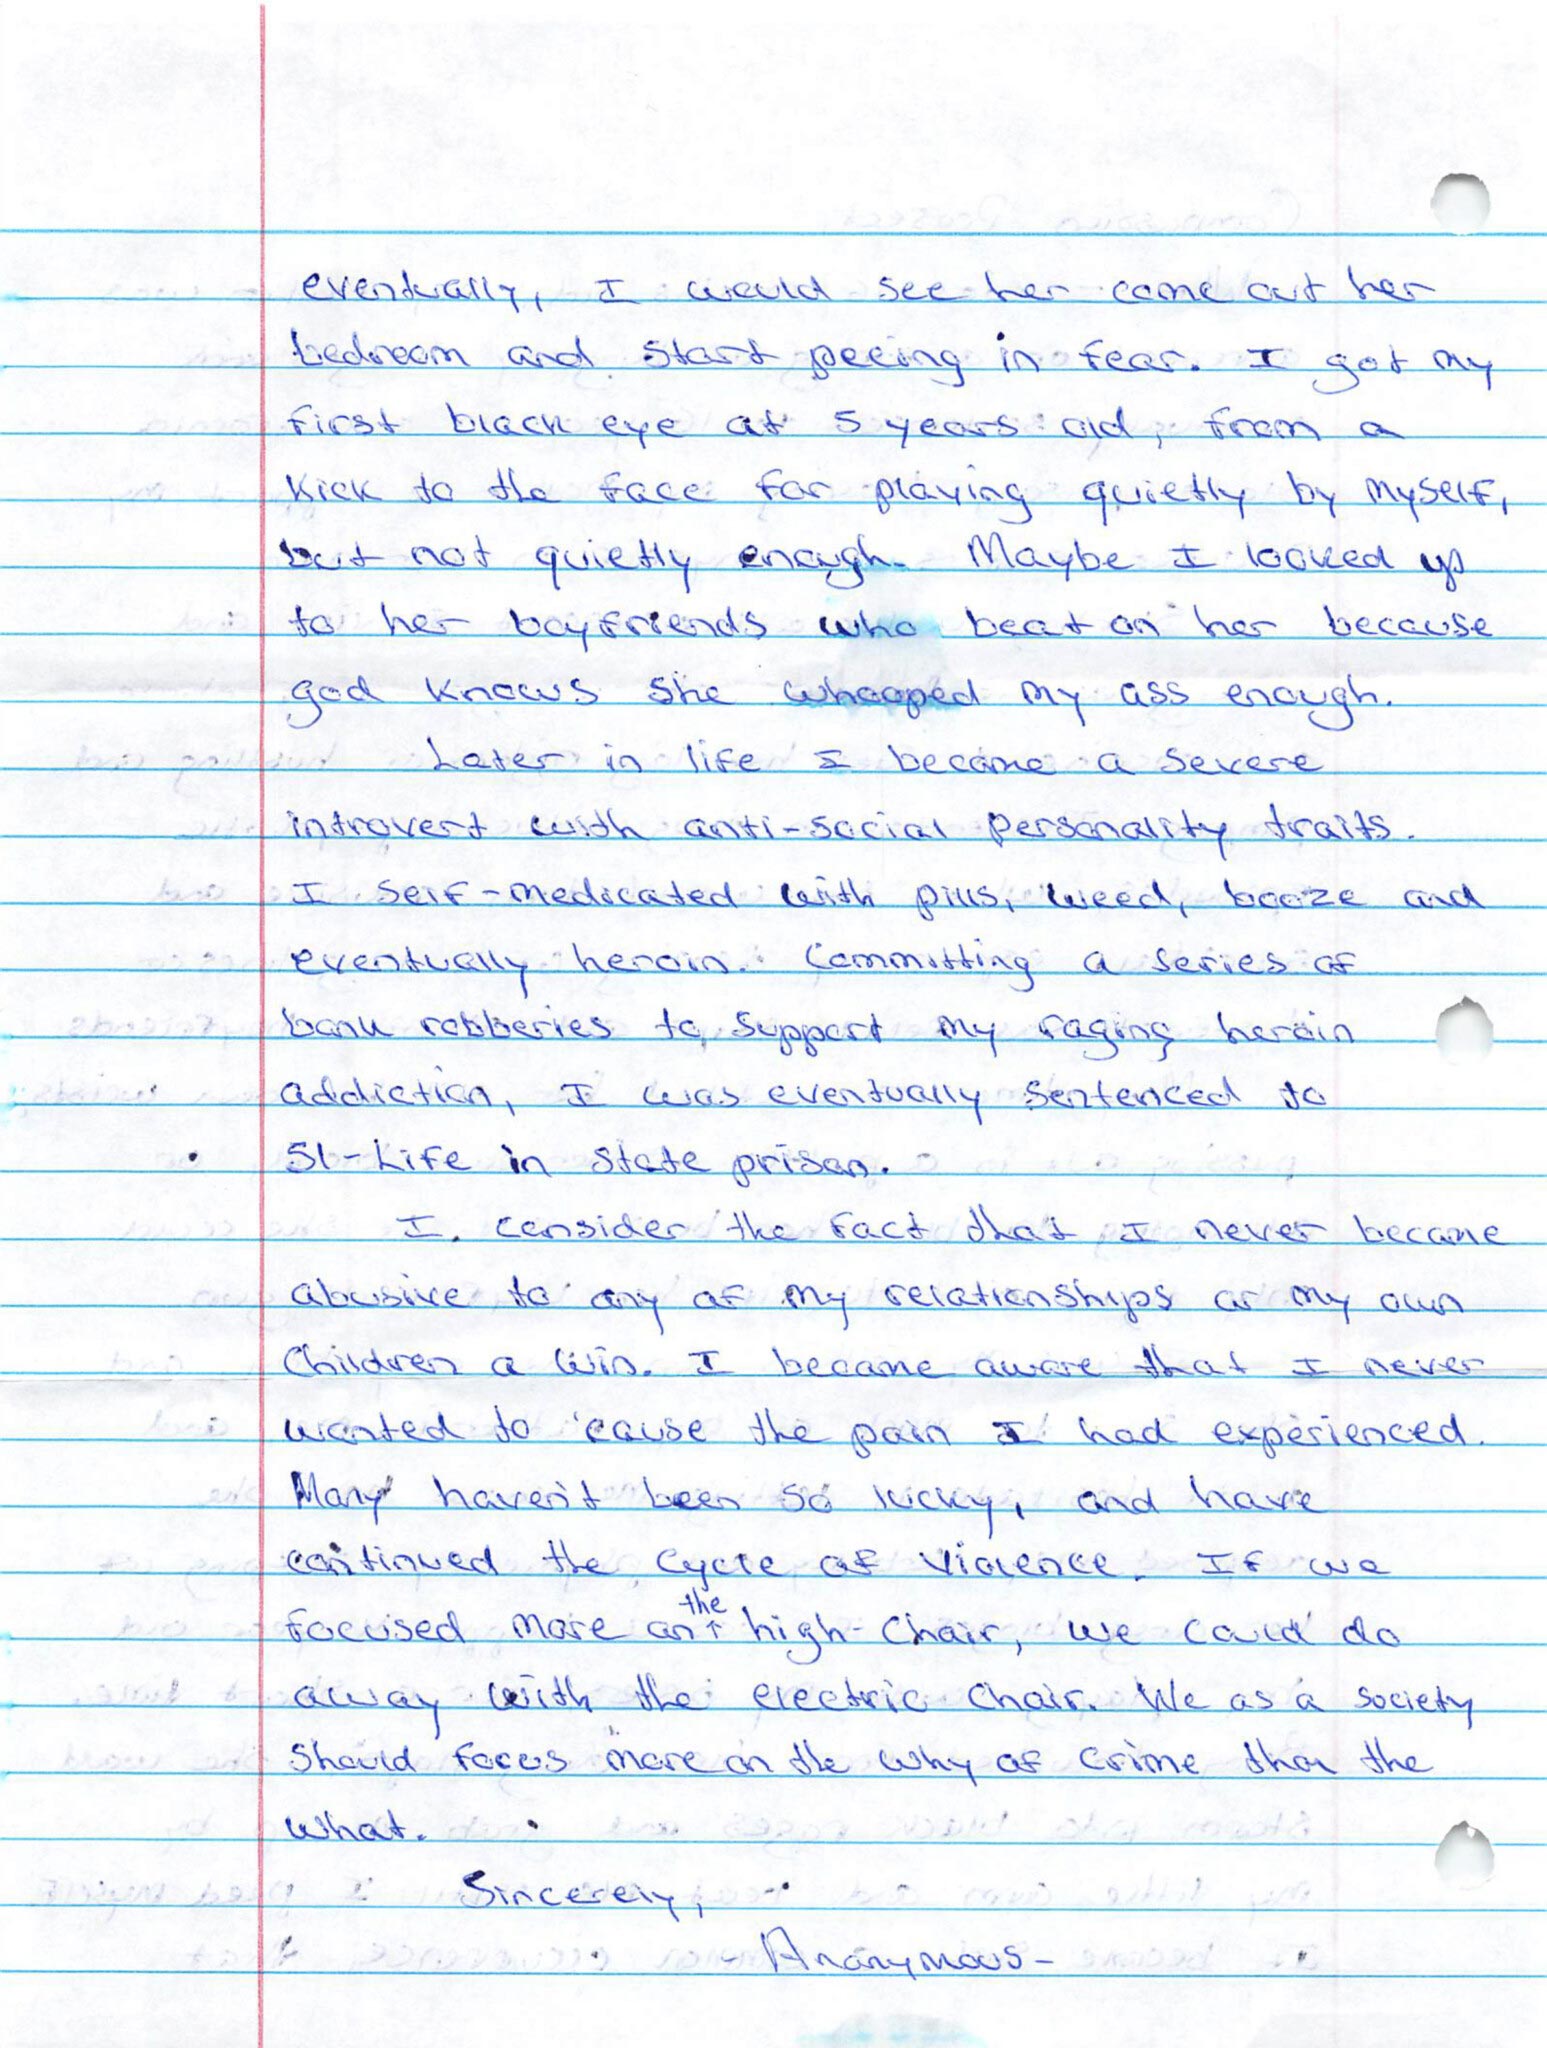 eventually, I would see her come out her
bedroom and start peeing in fear. I got my
first black eye at 5 years old, from a
kick to the face for playing quietly by myself,
but not quietly enough. Maybe I looked up
to her boyfriends who beat on her because
god knows she whooped my ass enough.
Later in life I became a severe
introvert with anti-social personality traits.
I self-medicated with pills, weed, booze and
eventually heroin. Committing a series of
bank robberies to support my raging heroin
addiction, I was eventually sentenced to
51-Life in state prison.
I consider the fact that I never became
abusive to any of my relationships or my own
children a win. I became aware that I never
wanted to cause the pain I had experienced.
Many haven't been so lucky, and have
continued the cycle of violence. If we
focused more on the high-chair, we could do
away with the electric chair. We as a society
should focus more on the why of crime than the
what.
Sincerely,
Anonymous-